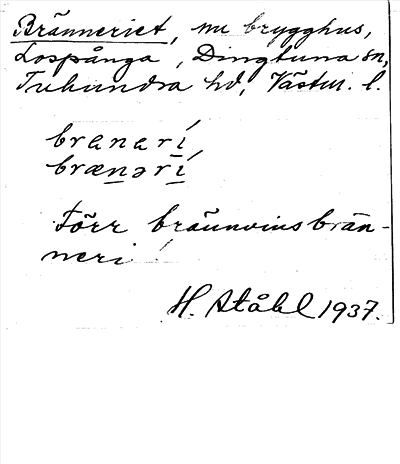 Bränneriet, nu brygghus,
Lospånga, Dingtuna sn,
Tuhundra hd, Västm. l.
branarí
brænərí
Förr brännvinsbrän-
neri!
H. Ståhl 1937.